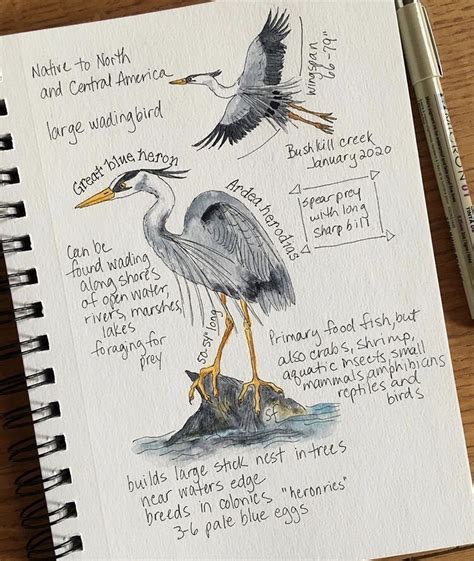 Native to North
and Central America
large wading bird
wingspan
66-79"
Bushkill creek
January 2020
Great blue heron
Ardea herodias
spear prey
with long
sharp bill
Can be
found wading
along shores
of open water,
rivers, marshes,
lakes
foraging for
prey
50-54" long
Primary food fish, but
also crabs, shrimp,
aquatic insects, small
mammals, amphibians
reptiles and
birds
SF
builds large stick nest in trees
near waters edge
breeds in colonies "heronries"
3-6 pale blue eggs
MICRON